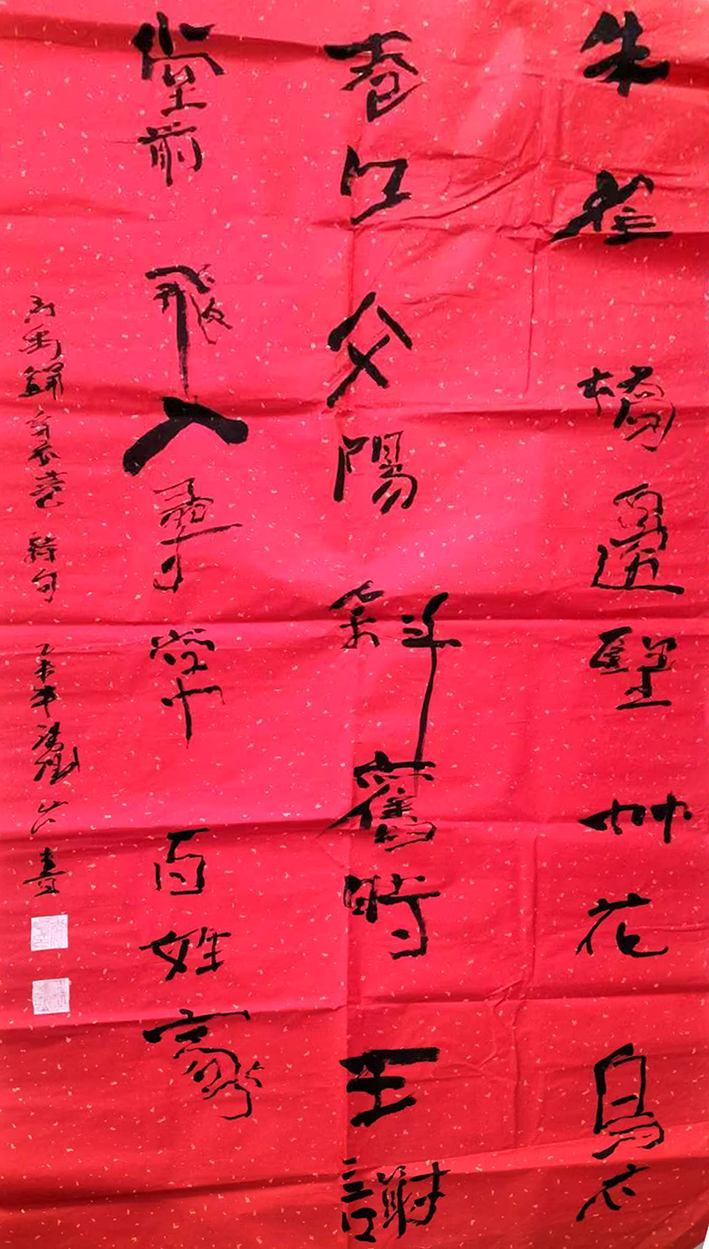 朱雀橋邊墅艸花烏衣
巷口夕陽斜舊時王謝
堂前飛入尋常百姓家
劉禹錫烏衣巷詩句 書